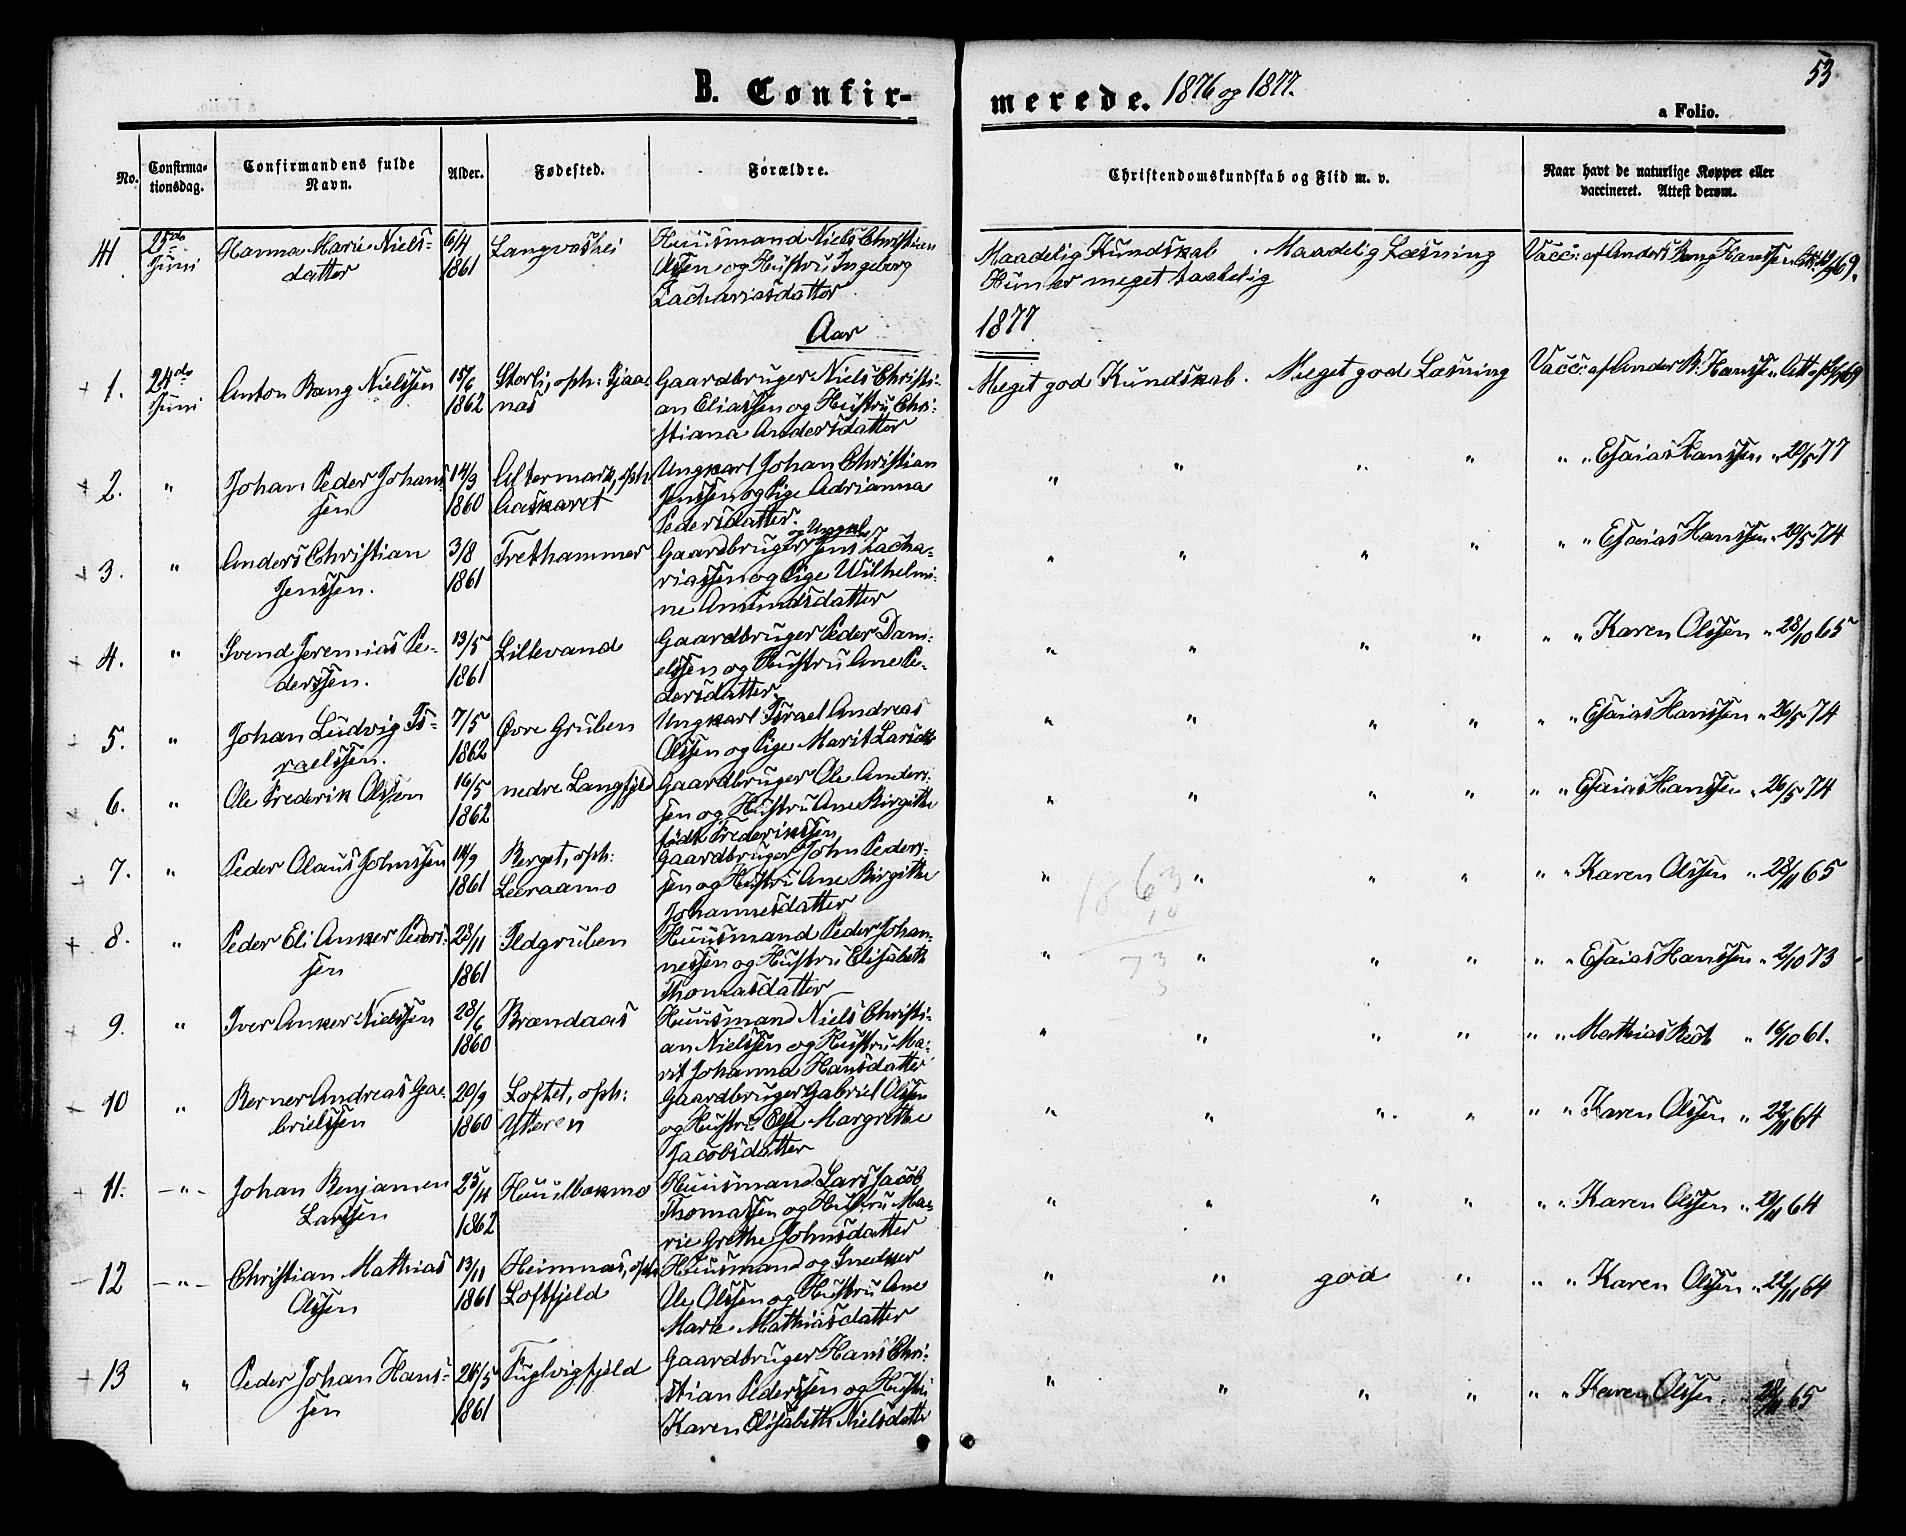 53
B. Confirmerede. 1876 og 1877.
a Folio.
No. Confirmationsdag. Confirmandens fulde Navn. Alder. Fødested. Forældre. Christendomskundskab og Flid m. v. Naar havt de naturlige Kopper eller vaccineret. Attest derom.
41. 25de Juni Hanna Marie Nielsdatter 6/4 1861 Langvashei Huusmand Niels Christian Olssen og Hustru Ingeborg Zachariasdatter Maadelig Kundskab. Maadelig Læsning Hun er meget taabelig Vacc: af Anders Bang Hanssen
Aar 1877
+ 1. 24de Juni Anton Bang Nielssen 15/6 1862 Storli, oph: Gaardbruger Niels Christian Eliassen og Hustru Christiana Andersdatter Meget god Kundskab. Meget god Læsning Vacc: af Ander B: Hanssen
+ 2. " Johan Peder Johanssen 14/9 1860 Altermark, oph: Aaskaret Ungkarl Johan Christian Jenssen og Pige Adrianna Pedersdatter. " " " " " " Esaias Hanssen " 20/5 77
+ 3. " Anders Christian Jenssen. 3/8 1861 Frethammer Gaardbruger og Ungkarl Jens Zachariassen og Pige Wilhelmine Amundsdatter " " " " " " Esaias Hanssen " 20/5 74
+ 4. " Svend Jeremias Pederssen. 13/5 1861 Lillevand Gaardbruger Peder Danielssen og Hustru Ane Pedersdatter. " " " " " " Karen Olssen " 28/10 65
+ 5. " Johan Ludvig Israelssen. 7/5 1862 Øvre Gruben Ungkarl Israel Andreas Olssen og Pige Marit Larsdtr " " " " " " Esaias Hanssen " 26/5 74
+ 6. " Ole Frederik Olssen 16/5 1862 nedre Langfjeld Gaardbruger Ole Anderssen og Hustru Ane Birgithe født Frederikssen " " " " " " Esaias Hanssen " 26/5 74
+ 7. " Peder Olaus Johnssen 14/9 1861 Berget, oph: Leeraamo Gaardbruger John Pederssen og Hustru Ane Birgithe Johannesdatter " " " " " " Karen Olssen " 28/11 65
1863
10
73
5
+ 8. " Peder Eli Anker Pederssen 28/11 1861 Ildgruben Huusmand Peder Johannessen og Hustru Elisabeth Thomasdatter " " " " " " Esaias Hanssen " 2/10 73
+ 9. " Iver Anker Nielssen 28/6 1860 Brændaas Huusmand Niels Christian Nielssen og Hustru Marit Johanna Hansdatter " " " " " " Mathias Redt " 16/10 61.
+ 10 " Berner Andreas Gabrielssen 20/9 1860 Loftet, oph: Ytteren Gaardbruger Gabriel Olssen og Hustru Else Margrethe Jacobsdatter " " " " " " Karen Olssen " 22/11 64
+ 11. -"- Johan Benjamen Larssen 25/4 1862 Huusmand Lars Jacob Thomassen og Hustru Marie Grethe Johnsdatter " " " " " " Karen Olssen " 64
- 12 -"- Christian Mathias Olssen 13/11 1861 Heimnæs, oph: Loftfjeld Huusmand og Snedker Ole Olssen og Hustru Ane Marie Mathiasdatter " " god " " " Karen Olssen " 22/11 64
+ 13 " Peder Johan Hanssen 26/5 1861 Fuglvigfjeld Gaardbruger Hans Christian Pederssen og Hustru Karen Elisabeth Nielsdatter " " " " " " Karen Olssen 28/11 65